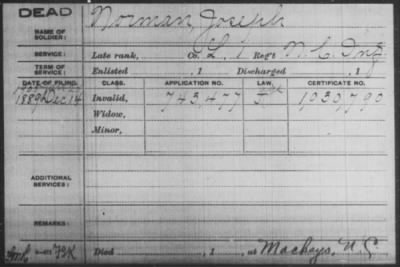 DEAD
NAME OF SOLDIER: Norman, Joseph
SERVICE: Late rank, Co. L, 1 Reg't N. C. Inf.
TERM OF SERVICE: Enlisted , 1 Discharged , 1
DATE OF FILING. CLASS. APPLICATION NO. LAW. CERTIFICATE NO.
1889 Dec 14 Invalid, 743,477 1939,790
Widow,
Minor,
ADDITIONAL SERVICES:
REMARKS:
Died , 1 , at Mackeys, N. C.